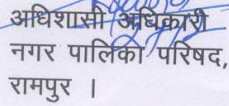 अधिशासी अधिकारी
नगर पालिका परिषद,
रामपुर ।